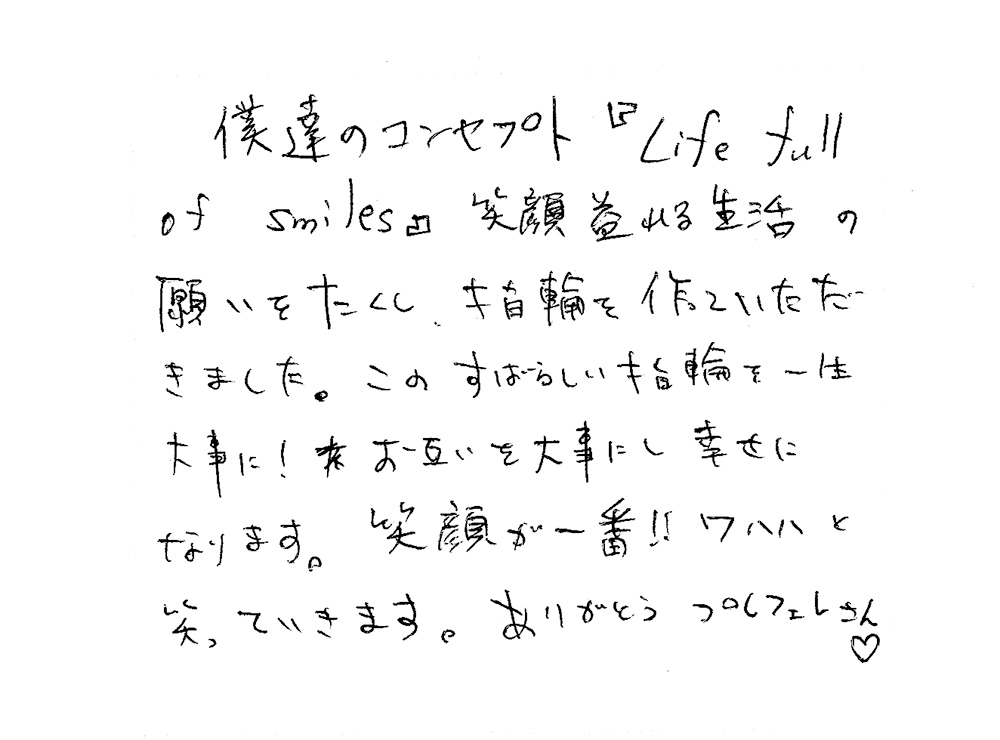 僕達のコンセプト『Life full
of smiles』笑顔益れる生活の
願いをたくし、指輪を作っていただ
きました。このすばらしい指輪を一生
大事に！お互いを大事にし幸せに
なります。笑顔が一番!!ワハハと
笑っていきます。ありがとうプロフェレさん
♡